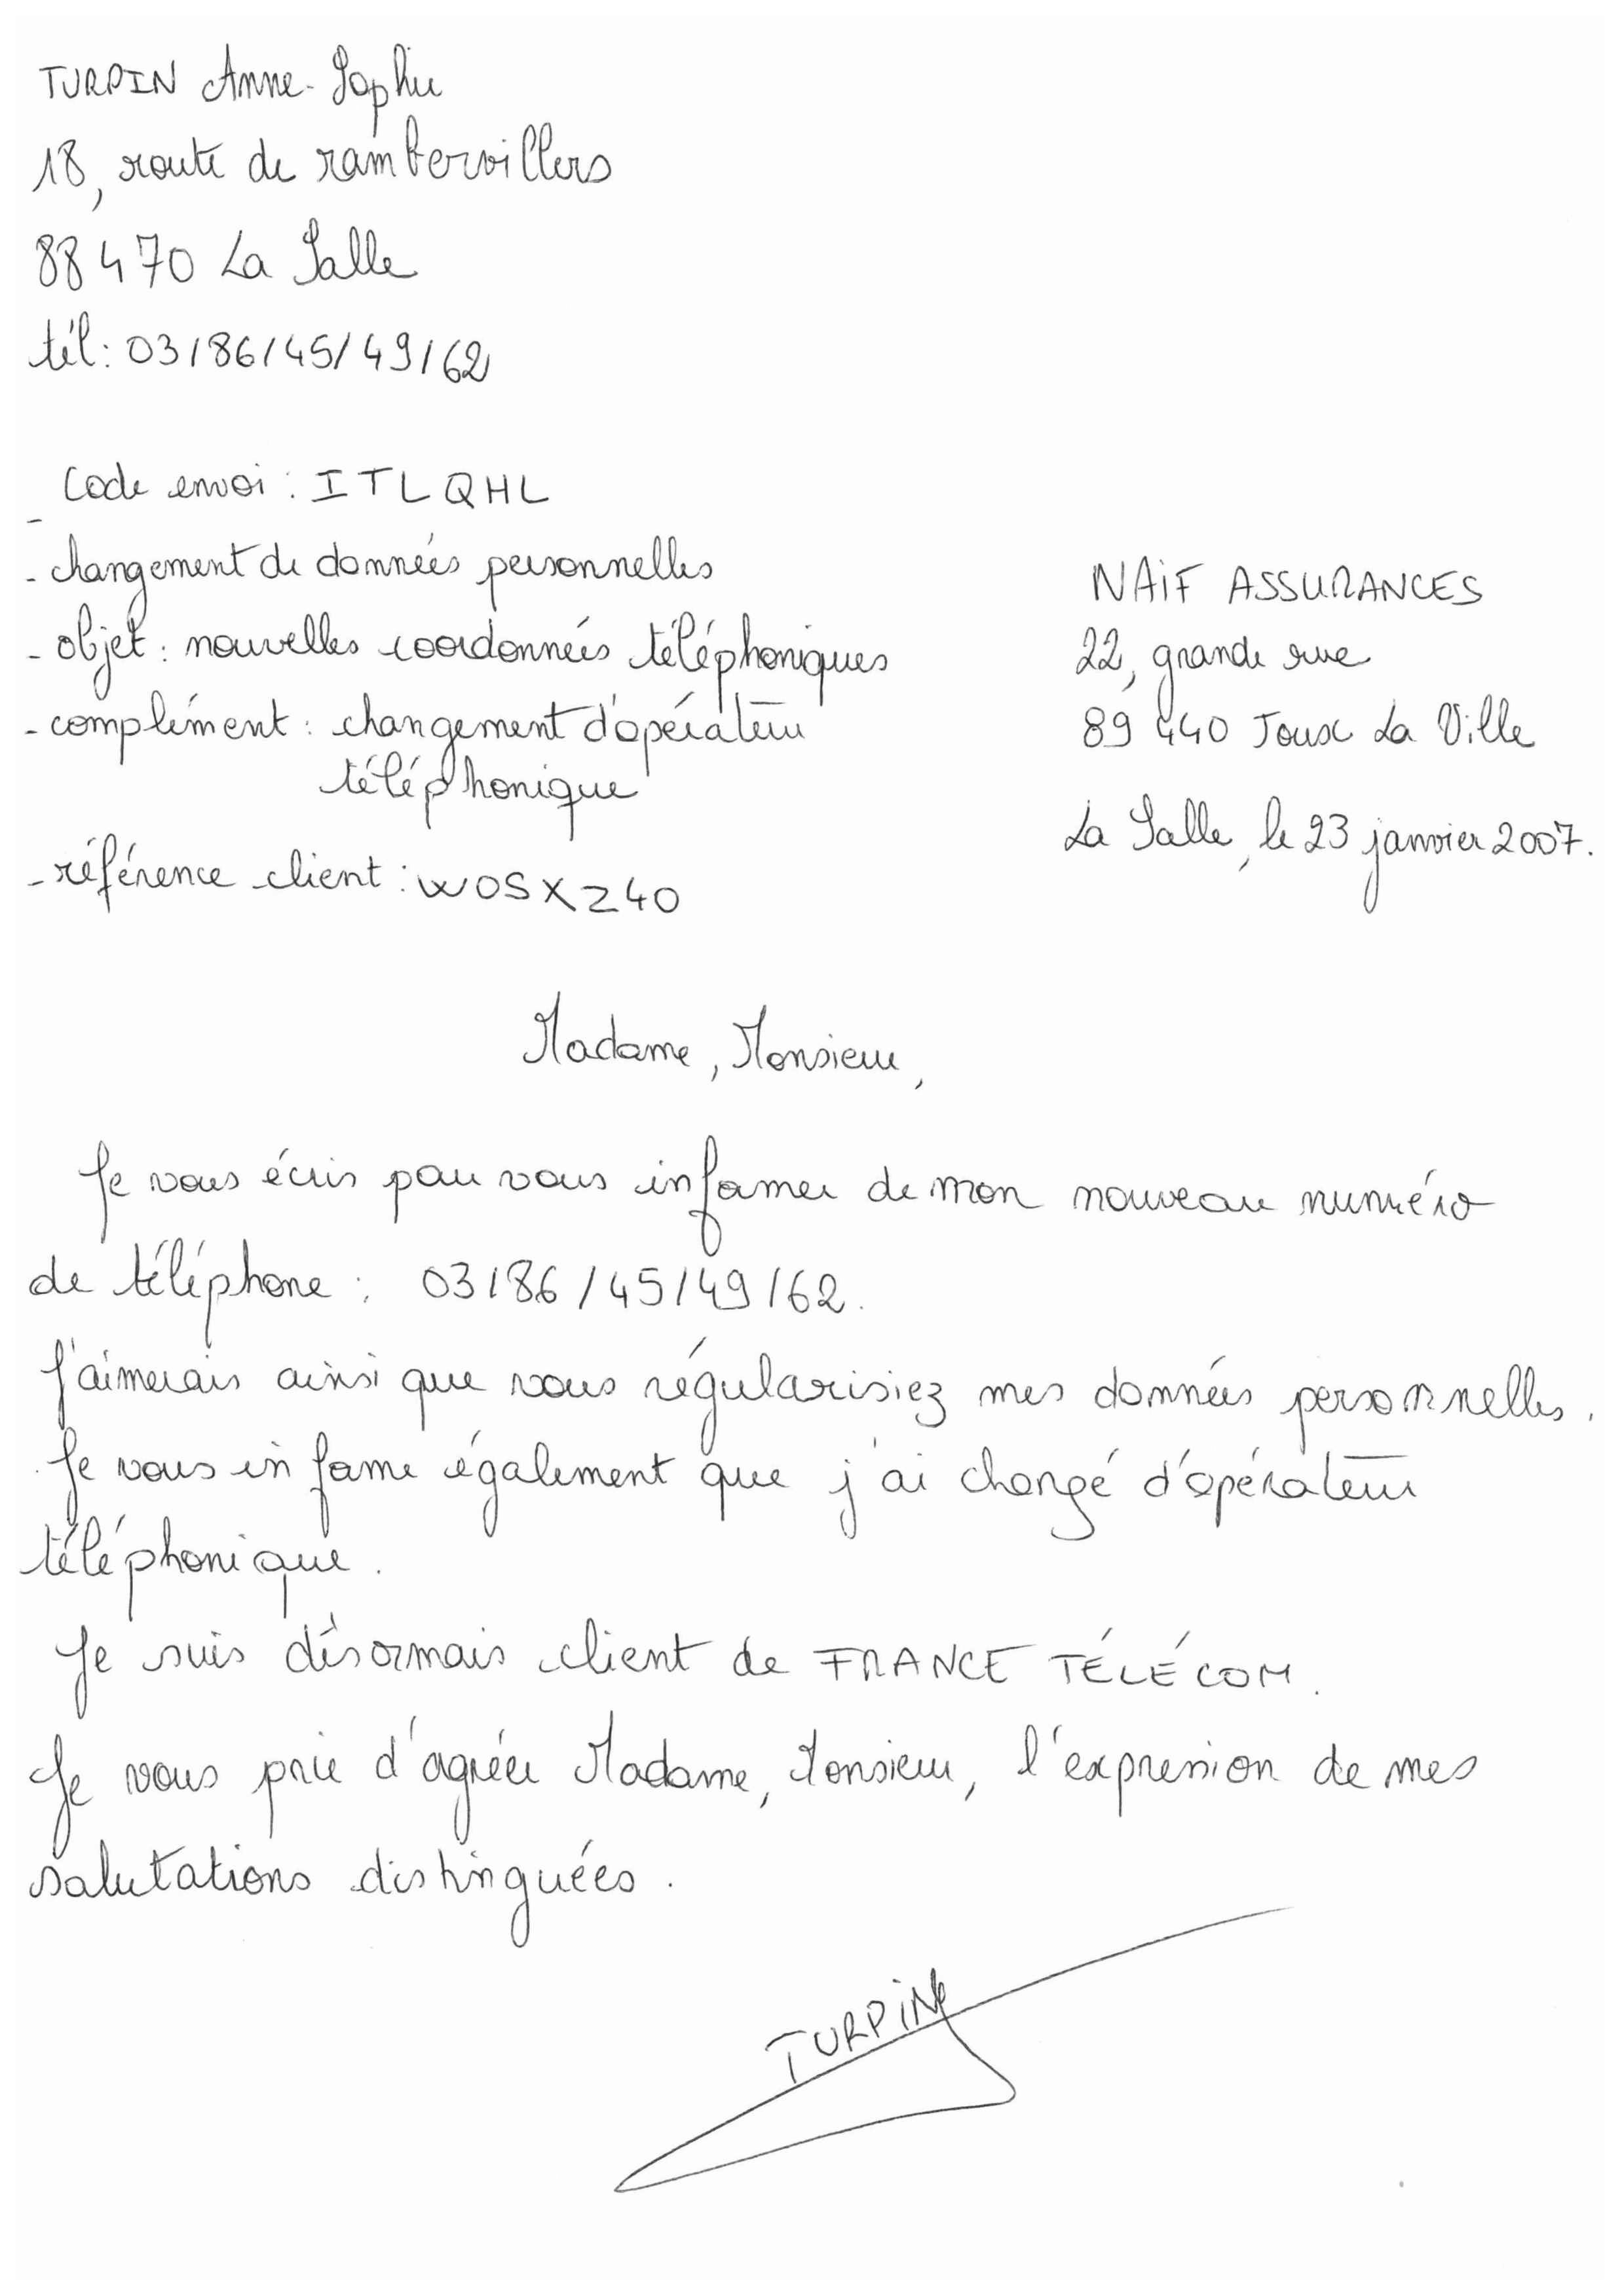 TURPIN Anne-Sophie
18, route de rambervillers
88470 La Salle
tél: 03/86/45/49/62
Code envoi : ITLQHL
- changement de données personnelles
- objet : nouvelles coordonnées téléphoniques
- complément : changement d'opérateur
téléphonique
- référence client : WOSXZ40
NAIF ASSURANCES
22, grande rue
89 440 Joux La Ville
La Salle, le 23 janvier 2007.
Madame, Monsieur,
Je vous écris pour vous informer de mon nouveau numéro
de téléphone : 03/86/45/49/62.
J'aimerais ainsi que vous régularisiez mes données personnelles.
Je vous informe également que j'ai changé d'opérateur
téléphonique.
Je suis désormais client de FRANCE TÉLÉCOM.
Je vous prie d'agréer Madame, Monsieur, l'expression de mes
salutations distinguées.
TURPIN